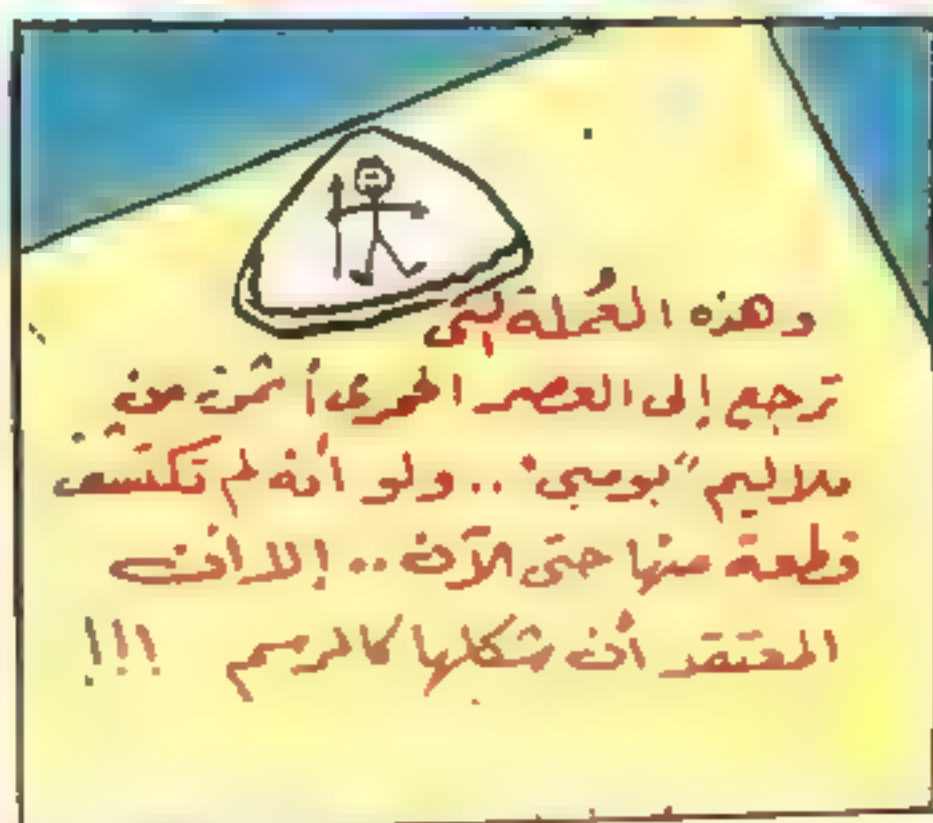 وهذه العُملة التى
ترجع إلى العصر الحجرى أثمن من
ملاليم "بومبى" .. ولو أنه لم تكتشف
قطعة منها حتى الآن .. إلا أن
المعتقد أن شكلها كالرسم !!!